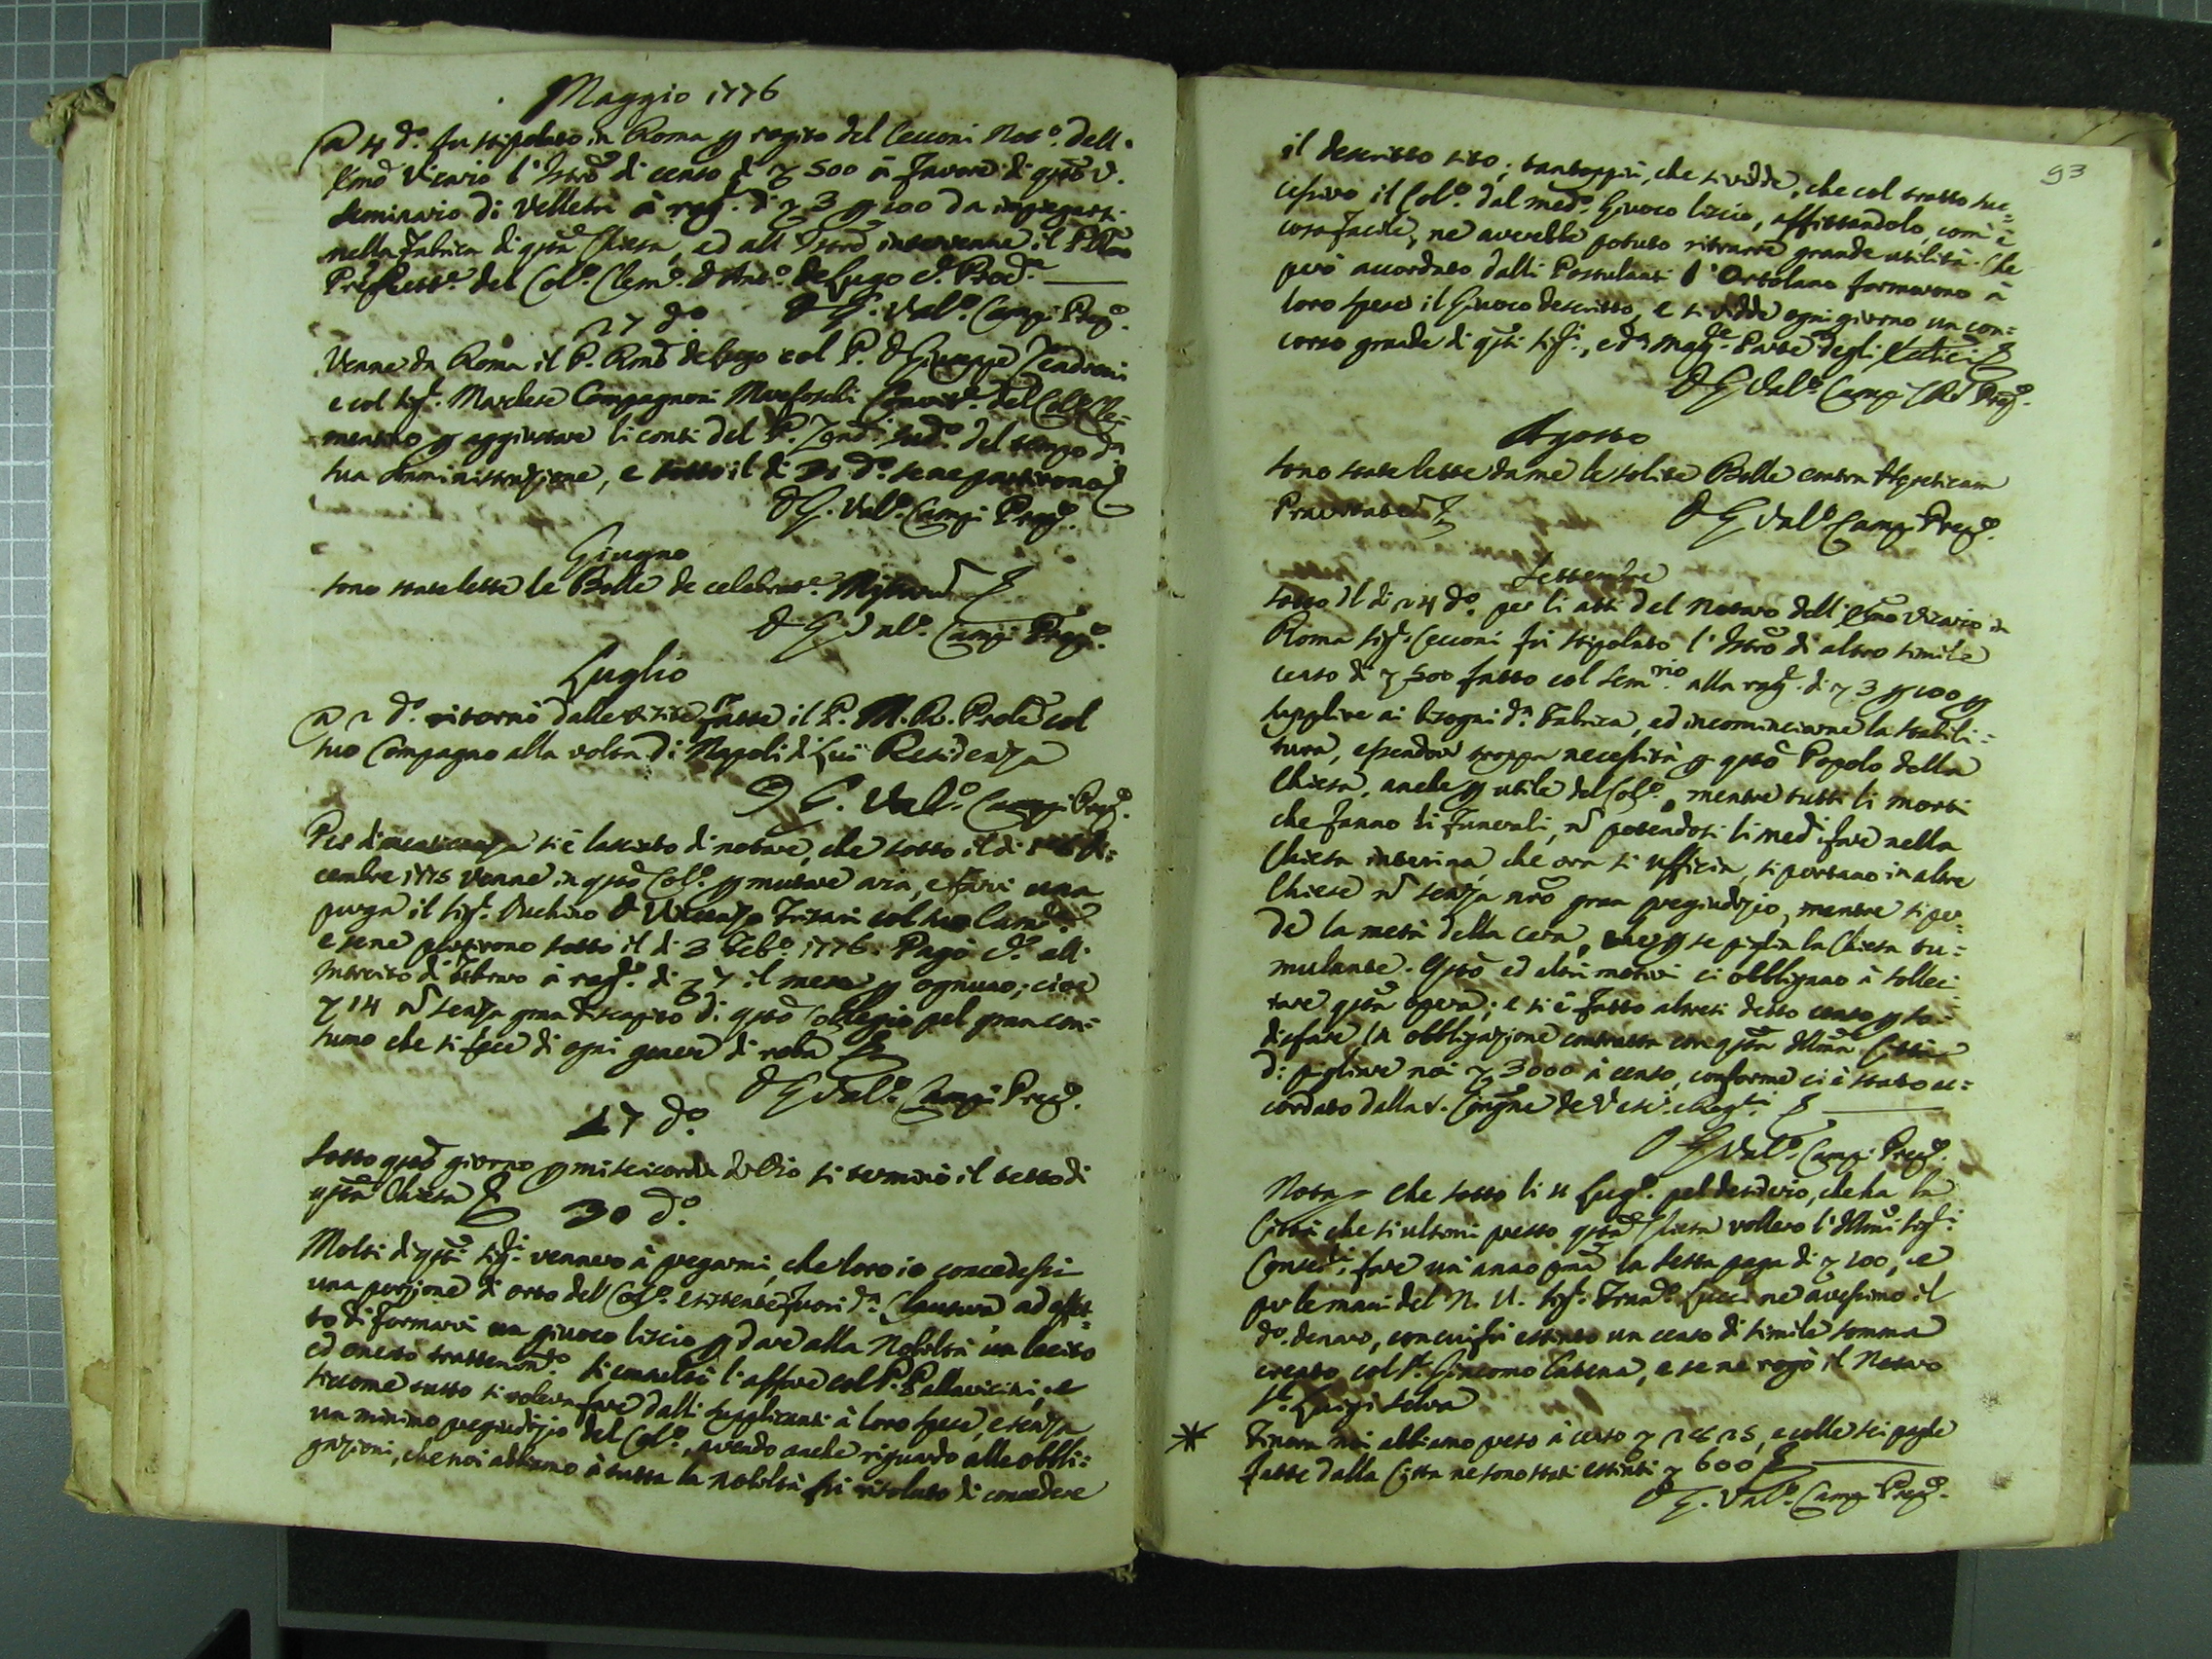 Maggio 1776
A 4 d.º fu stipolato in Roma p rogito del Cecconi Not.º dell'
Emo Vicario l'Istrõ di censo di 500 à favore di qsto V.
Seminario di Velletri à rag.e di 3 p 100 da impiegarsi
nella Fabrica di qsta Chiesa, ed all'Istrõ intervenne il
del Col.º Clem.º D. Ant.º de Lugo
D G. Val.º Campi Prep.º
27 d.º
Venne da Roma il P. de Lugo col P. D Giuseppe Zendroni
e col Sig.r Marchese Compagnoni Marefoschi del Col.º Cle=
mentino p aggiustare li conti del P. Zend.i sud.º del tempo d.
sua Amministrazione, e sotto il di 31 d.º se ne partirono
D G. Val.º Campi Prep.º
Giugno
Sono state lette le Bolle de celebrat.e Missarũ
D G Val.º Campi Prep.º
Luglio
A 2 d.º ritornò dalle visite fatte il P. M. R. Prõle col
suo Compagno alla volta di Napoli di Lui Residenza
D G. Val.º Campi Prep.º
Per dimenticanza si è lasciato di notare, che sotto il di
cembre 1775 venne in qsto Col.º p mutare aria, e farvi una
purga il Sig.r Duchino D Vincenzo col suo Cam.e
e se ne partirono sotto il di 3 Feb.º 1776. Pagò all'
Introito di Febraro à rag.e di 7 il mese p ognuno; cioè
14 nõ senza gran discapito di qsto Collegio pel gran con=
sumo che si fece di ogni genere di roba
D G Val.º Campi Prep.º
27 d.º
Sotto qsto giorno p misericordia di Dio si terminò il tetto di
qsta Chiesa
30 d.º
Molti di qsti Sig.ri vennero à pregarmi, che loro io concedessi
una porzione di orto del Col.º esistente fuori d. Clausura, ad effet=
to di formarvi un giuoco liscio p dare alla Nobiltà un lecito
ed onesto trattenim.to Si consultò l'affare col P. Pallavicini, e
siccome tutto si voleva fare dalli supplicanti à loro spese, e senza
un minimo pregiudizio del Col.º, avendo anche riguardo alle obbli=
gazioni, che noi abbiamo à tutta la nobiltà fu risoluto di concedere
93
il descritto sito; tantoppiù, che si vidde, che col tratto suc=
cessivo il Col.º dal med.º Giuoco liscio, affittandolo, com'è
cosa facile, ne averebbe potuto ritrarre grande utilità. Che
però accordato dalli Postulanti l'Ortolano formarono à
loro spese il Giuoco descritto, e si vidde ogni giorno un con=
corso grande di qsti Sig.ri, e d. magg.e Parte degli
D G Val.º Campi Prep.º
Agosto
Sono state lette da me le solite Bolle contra Hæreticam
Pravitatem
D G Val.º Campi Prep.º
Settembre
Sotto il di 24 d.º per li atti del Notaro dell'Emo Vicario in
Roma Sig.r Cecconi fu stipolato l'Istrõ di altro simile
censo di 500 fatto col Sem.rio alla rag.e di 3 p 100 p
supplire ai bisogni d. Fabrica, ed incominciarne la stabili=
tura, essendovi troppa necessità p qsto Popolo della
Chiesa, anche p utile del Col.º, mentre tutti li morti
che fanno li Funerali, nõ potendosi li med.i fare nella
Chiesa interina, che ora si ufficia, si portano in altre
Chiese nõ senza nrõ gran pregiudizio, mentre si per=
de la metà della cera, che p se piglia la Chiesa tu=
mulante. Qsto ed altri motivi ci obbligano à solleci=
tare qsta opera; e si è fatto altresi detto censo p so=
disfare la obbligazione contratta con qsta Illma Città
di pigliare noi 3000 à censo, conforme ci è stato ac=
cordato dalla S. Congne de Vesc.i e Reg.ri
D G Val.º Campi Prep.º
Nota che sotto li 11 Lug.º pel desiderio, che ha la
Città che si ultimi presto qsta Chiesa vollero l'Illmi Sig.ri
Conser.i fare un anno pma la sesta paga di 100, e
per le mani del N. U. Sig.r Fran.º Lucci ne avessimo il
d.º denaro, con cui fu estinto un censo di simile somma
creato col Sr. Giacomo Catena, e se ne rogò il Notaro
Sr. Luigi Selva
* Finora noi abbiamo preso à censo, e colle sei paghe
fatte dalla Città ne sono stati estinti 600
D G. Val.º Campi Prep.º